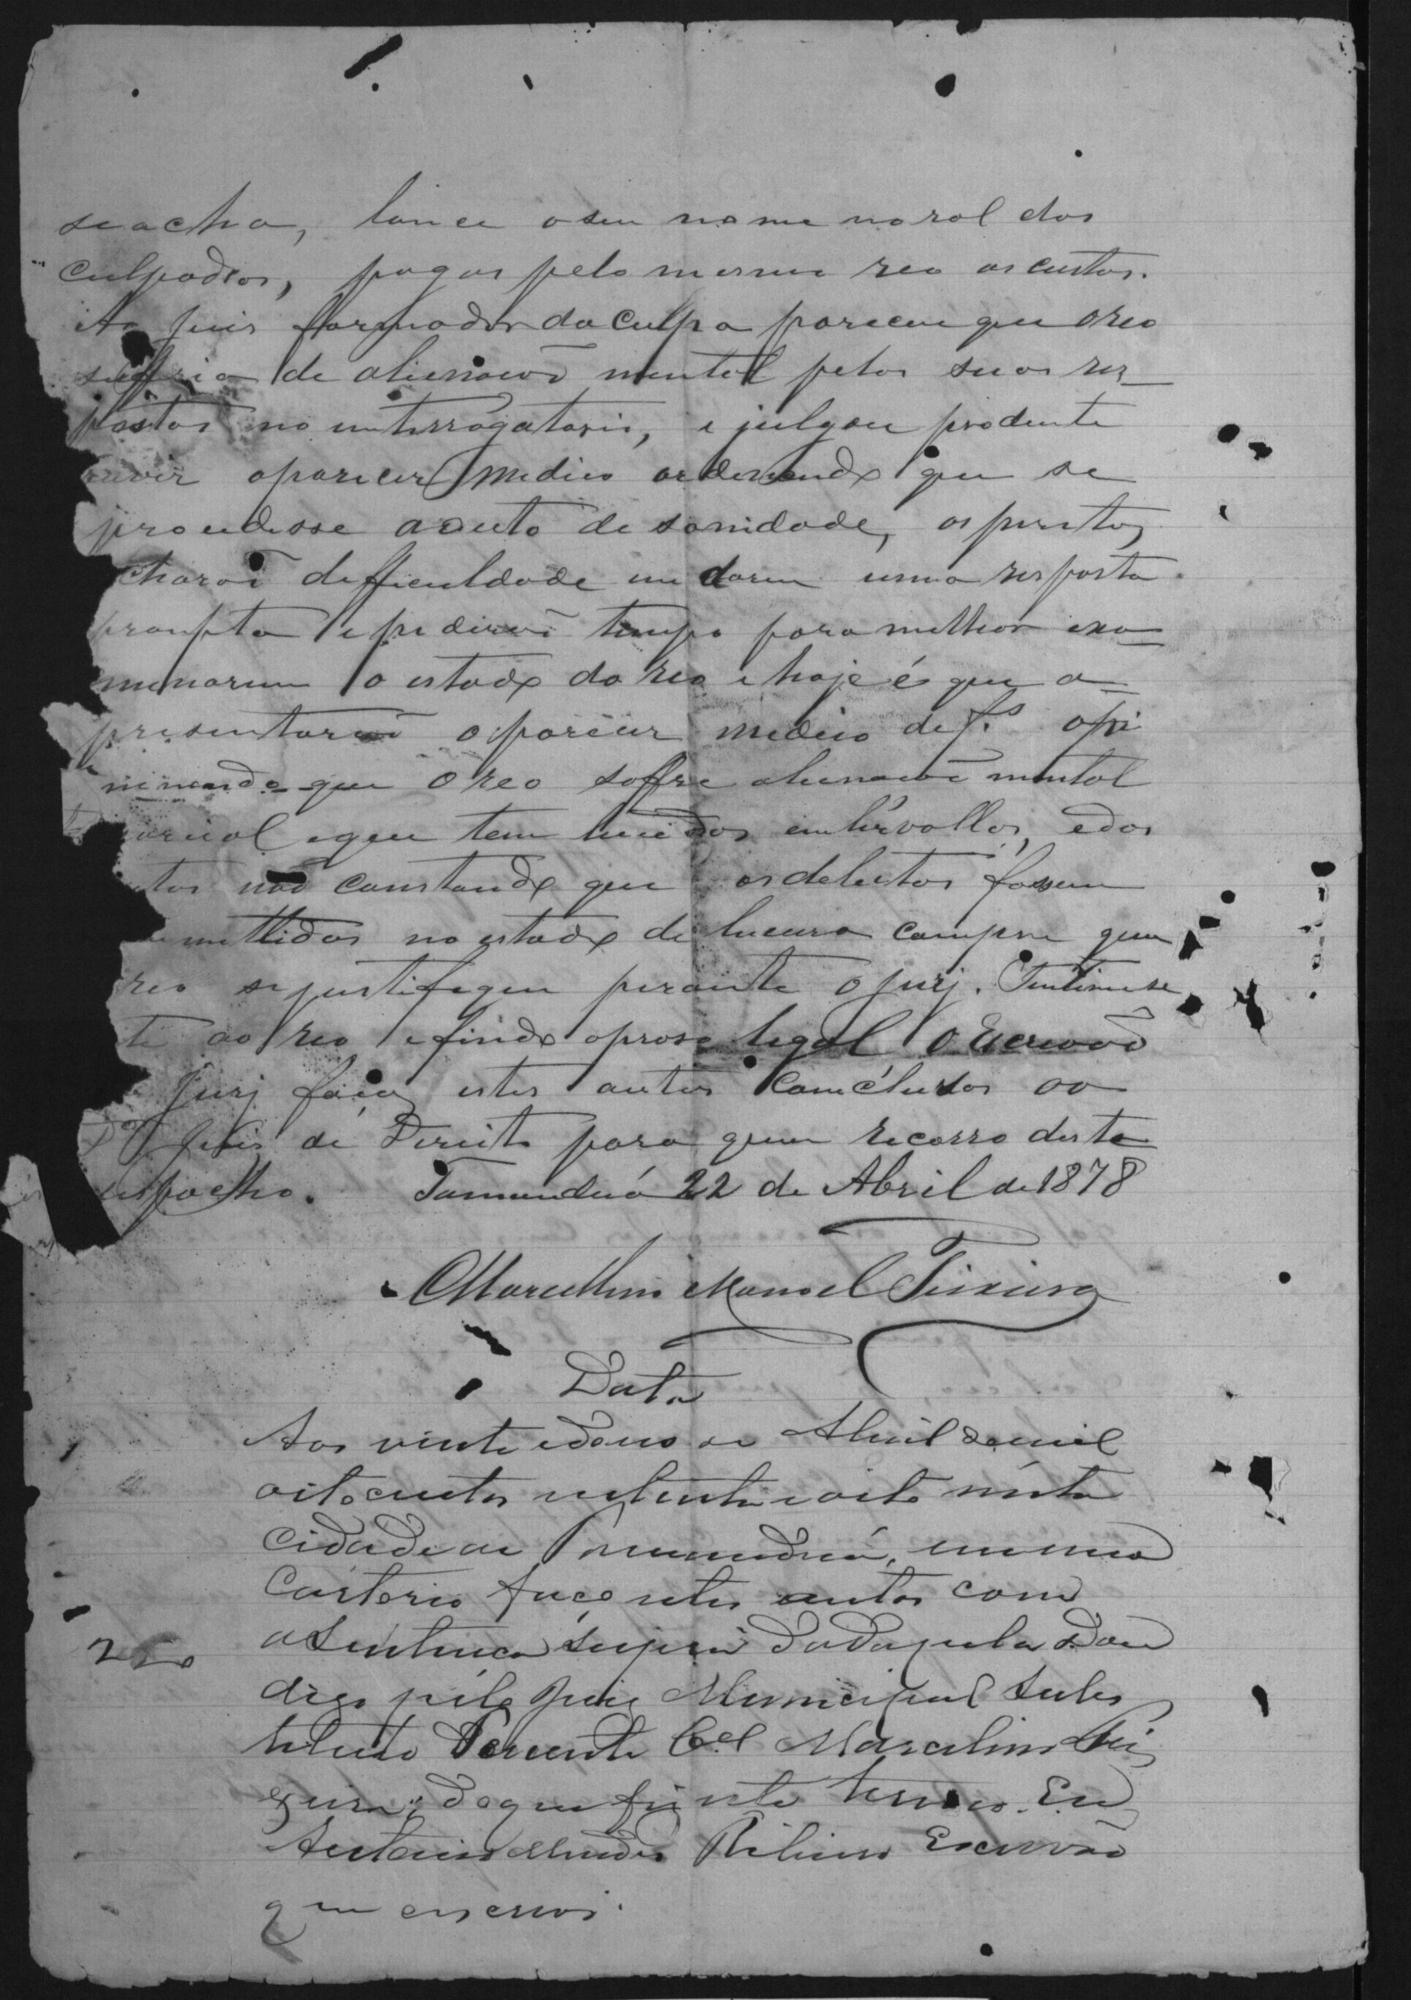 se acha, lance o seu nome no rol dos
culpados, pagas pelo mesmo reo as custas.
Ao juis formador da culpa pareceu que o reo
soffria de alienacaõ mental pelas suas res_
postas no interrogatorio, e julgou prudente
ouvir o parecer medico ordenando que se
procedesse a auto de sanidade, os peritos
acharaõ defficuldade em darem uma resposta
prompta e pediraõ tempo para milhor exa_
minarem o estado do reo e hoje é que a
presentaraõ o parecer medico de fs. opi
ninando que o reo soffre alienacaõ mental
parcial e que tem lucidos intervallos, e dos
autos naõ constando que os delictos fossem
commettidos no estado de lucura cumpre que
reo se justifique perante o jury. Intime-se
este ao reo e findo o praso legal o Escrivaõ
Jury faça estes autos conclusos ao
Dr Juis de Direito para quem recorro deste
despacho. Tamanduá 22 de Abril de 1878
Marcellino Manoel Teixeira
Data
Aos vinte e dous de Abril de mil
oitocentos setenta e oito nésta
Cidade de Tamanduá, em meu
Cartorio faço estes autos com
a Sentença supra dada pelo
pelo Juiz Municipal Subs
tituto Tenente Cel Marcelino Tei
xeira; do que fiz este termo. Eu
Antonio Mendes Ribeiro Escrivão
que escrevi.